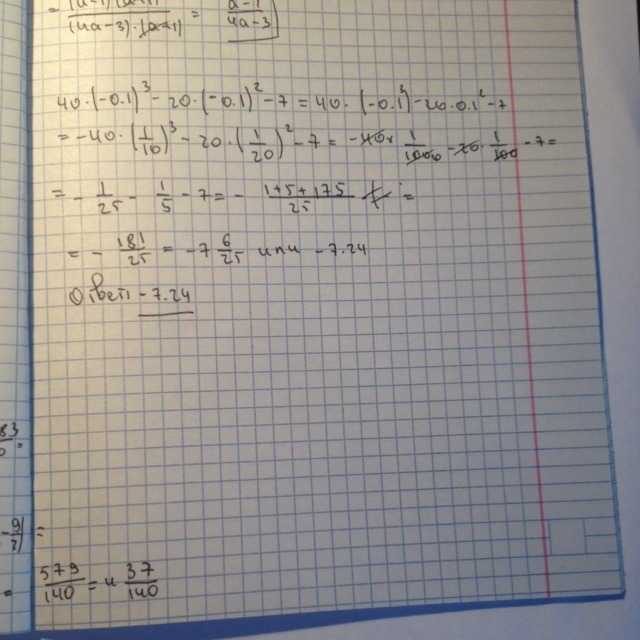 = (a-1)(a+1) / (4a-3)·(a+1) = a-1 / 4a-3
40·(-0.1)³ - 20·(-0.1)² - 7 = 40·(-0.1³) - 20·0.1² - 7
= -40·(1/10)³ - 20·(1/20)² - 7 = -40· 1/1000 - 20· 1/100 - 7 =
= - 1/25 - 1/5 - 7 = - 1+5+175 / 25 =
= - 181/25 = -7 6/25 или -7.24
Ответ -7.24
83
0 =
- 9/2) =
= 579/140 = 4 37/140